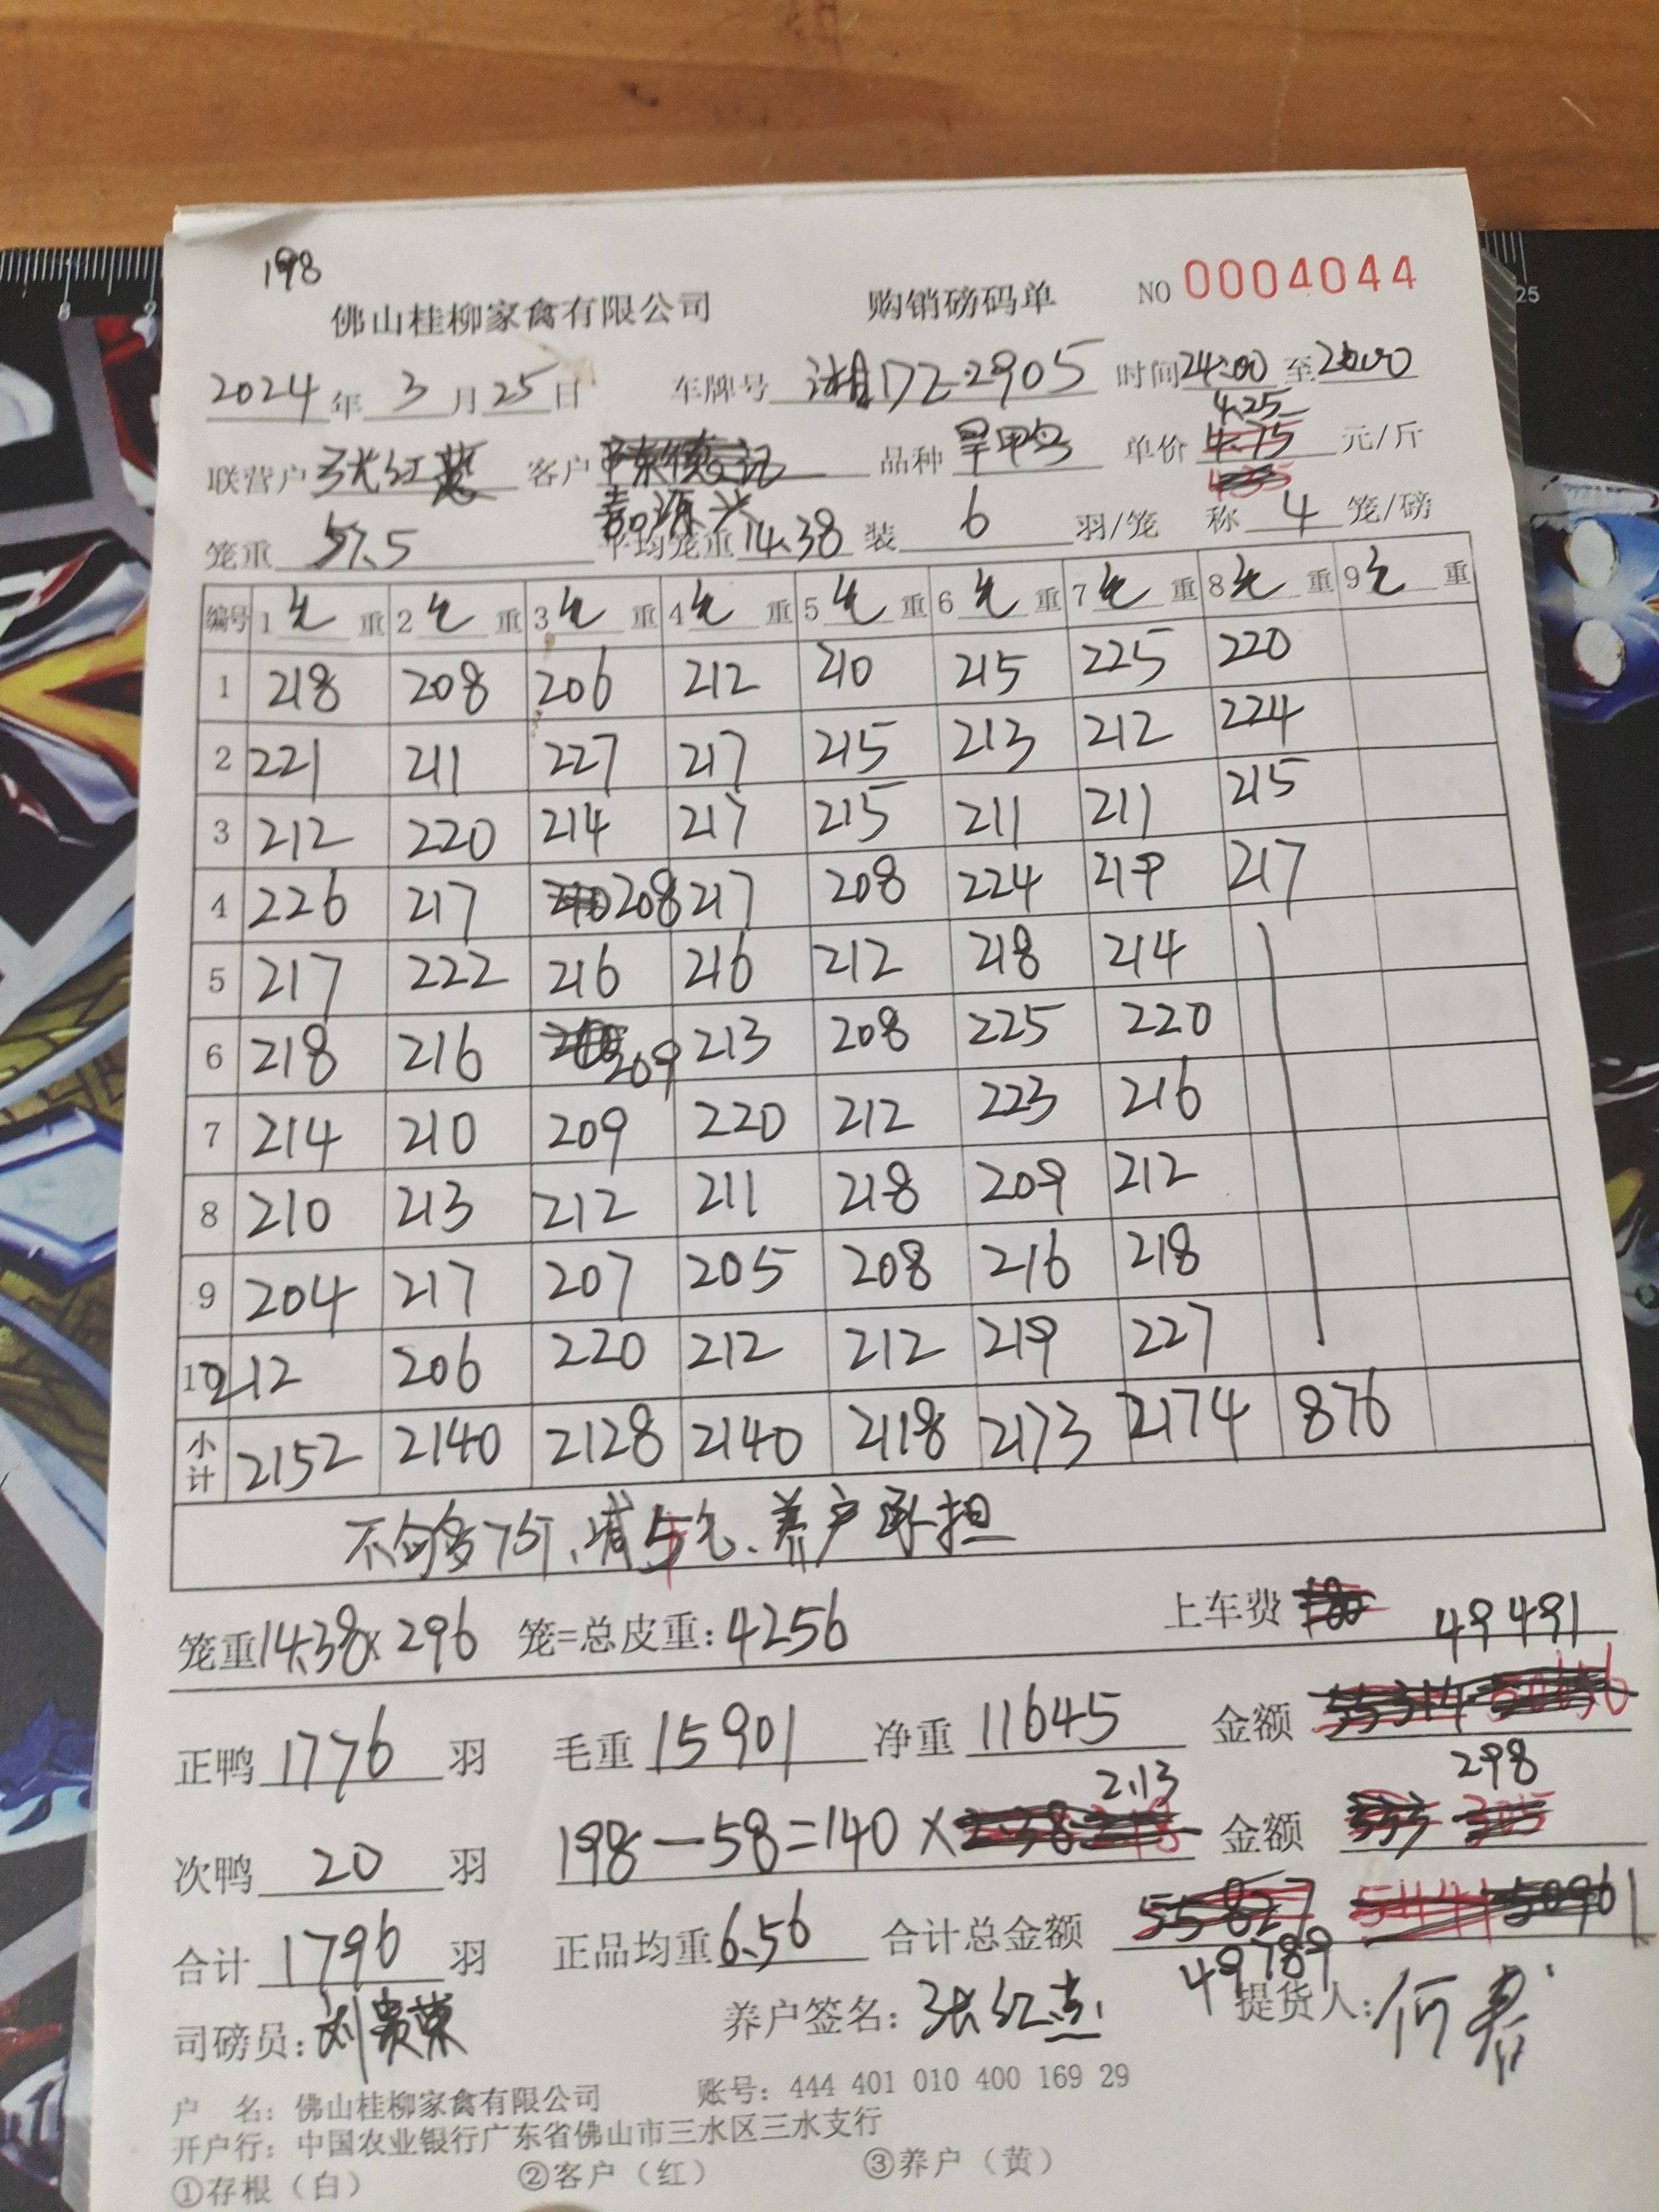 198
佛山桂柳家禽有限公司 购销磅码单 NO 0004044
2024年3月25日 车牌号 湘D72905 时间24:00至2:00
4.25
联营户 张红燕 客户 品种 旱鸭 单价 4.75 元/斤
嘉源兴
笼重 57.5 平均笼重14.38 装 6 羽/笼 称 4 笼/磅
编号 1 重 2 重 3 重 4 重 5 重 6 重 7 重 8 重 9 重
1 218 208 206 212 210 215 225 220
2 221 211 227 217 215 213 212 224
3 212 220 214 217 215 211 211 215
4 226 217 208 217 208 224 219 217
5 217 222 216 216 212 218 214
6 218 216 209 213 208 225 220
7 214 210 209 220 212 223 216
8 210 213 212 211 218 209 212
9 204 217 207 205 208 216 218
10 212 206 220 212 212 219 227
小计 2152 2140 2128 2140 2118 2173 2174 876
养户承担
笼重14.38×296 笼=总皮重:4256 上车费
49491
正鸭 1776 羽 毛重 15901 净重 11645 金额
2.13 298
次鸭 20 羽 198-58=140× 金额
合计 1796 羽 正品均重6.56 合计总金额 55827
49789
司磅员:刘贵荣 养户签名:张红燕 提货人:
户 名:佛山桂柳家禽有限公司 账号:444 401 010 400 169 29
开户行:中国农业银行广东省佛山市三水区三水支行
①存根(白) ②客户(红) ③养户(黄)